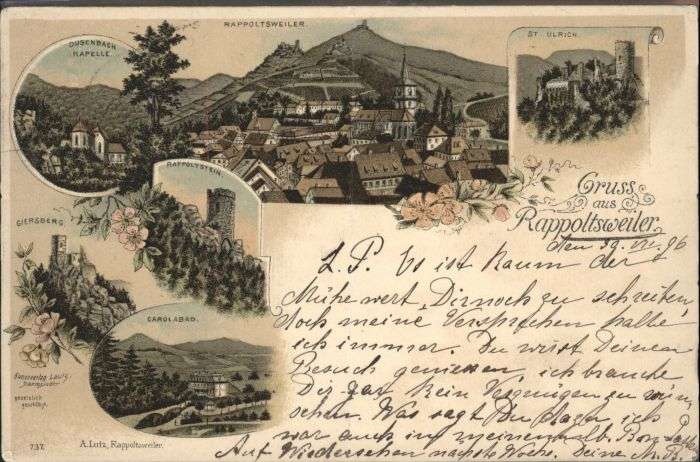 DUSENBACH
KAPELLE.
RAPPOLTSWEILER.
ST ULRICH.
RAPPOLTSTEIN.
GIERSBERG.
CAROLABAD.
Gruss
aus
Rappoltsweiler.
den 96
L. P. Es ist kaum der
Mühe wert, Dir noch zu schreiben,
doch meine Versprechen halte
ich immer. Du wirst Deinen
Besuch geniessen, ich brauche
Dir gar kein Vergnügen zu wün
schen. Was sagt Du dazu, ich
war auch in meinem
Auf Wiedersehen nächste Woche. Deine M.
gesetzlich
geschützt.
737.
A. Lutz, Rappoltsweiler.